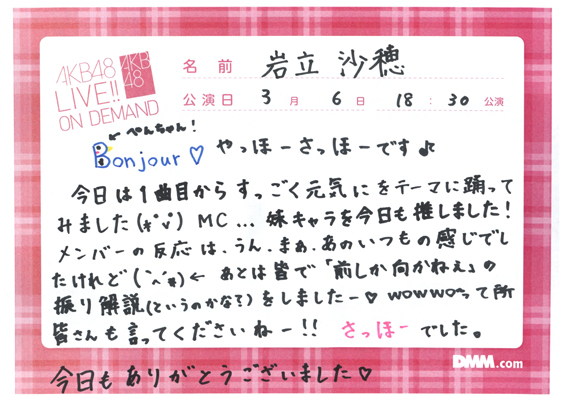 AKB48
LIVE!!
ON DEMAND
AKB
48
名前 岩立 沙穂
公演日 3月 6日 18:30 公演
←ぺんちゃん!
Bonjour♡ やっほーさっほーです♪
今日は1曲目からすっごく元気にをテーマに踊って
みました MC... 妹キャラを今日も推しました!
メンバーの反応は、うん、まぁ、あのいつもの感じでし
たけれど ← あとは皆で「前しか向かねぇ」の
振り解説(というのかな?)をしましたー♡ wowwo~って所
皆さんも言ってくださいねー!! さっほーでした。
DMM.com
今日もありがとうございました♡